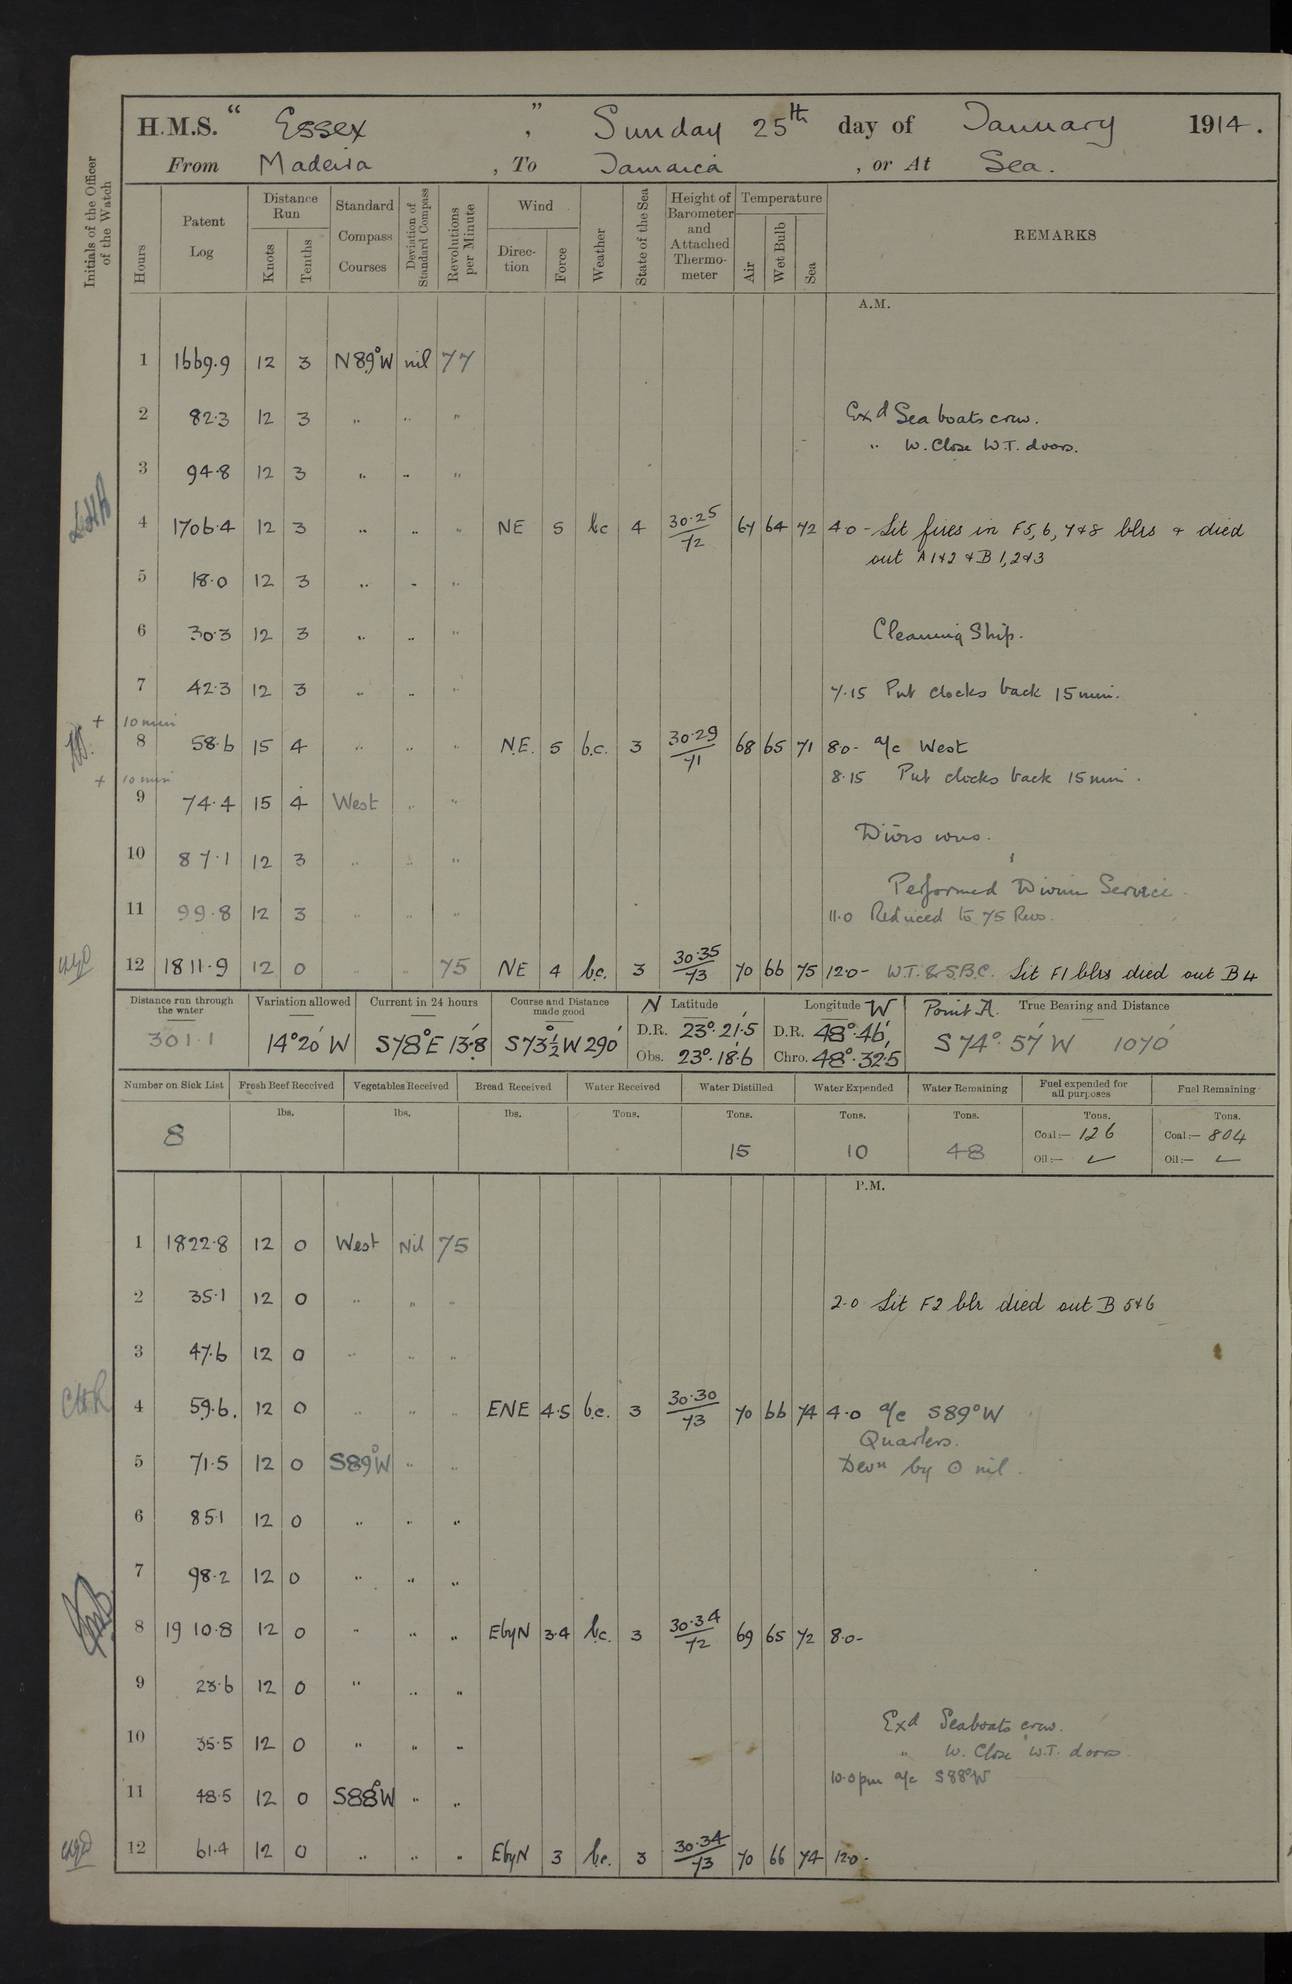 H.M.S. “ Essex ” , Sunday 25th day of January 1914 .
From Madeira , To Jamaica , or At Sea .
Initials of the Officer of the Watch
Hours
Patent Log
Distance Run
Knots
Tenths
Standard Compass Courses
Deviation of Standard Compass
Revolutions per Minute
Wind
Direction
Force
Weather
State of the Sea
Height of Barometer and Attached Thermometer
Temperature
Air
Wet Bulb
Sea
REMARKS
A.M.
1 1669.9 12 3 N89°W nil 77
2 82.3 12 3 " " " Exd Sea boats crew.
" W. Close W.T. doors.
3 94.8 12 3 " " "
4 1706.4 12 3 " " " NE 5 bc 4 30.25/72 67 64 72 4.0 - Lit fires in F5, 6, 7 & 8 blrs & died
out A 1 & 2 & B 1, 2 & 3
5 18.0 12 3 " " "
6 30.3 12 3 " " " Cleaning Ship.
7 42.3 12 3 " " " 7.15 Put clocks back 15 min.
+ 10 min
8 58.6 15 4 " " " N.E. 5 b.c. 3 30.29/71 68 65 71 8.0 - a/c West
+ 10 min 8.15 Put clocks back 15 min.
9 74.4 15 4 West " "
Divns
10 87.1 12 3 " " "
Performed Divine Service.
11 99.8 12 3 " " " 11.0 Reduced to 75 Revs.
12 1811.9 12 0 " " 75 NE 4 b.c. 3 30.35/73 70 66 75 12.0 - W.T. & S.B.C. Lit F1 blrs died out B 4
Distance run through the water
301.1
Variation allowed
14°20' W
Current in 24 hours
S78°E 13.8'
Course and Distance made good
S73½° W 290'
N Latitude
D.R. 23°.21'.5
Obs. 23°.18'.6
Longitude W
D.R. 48°.46'
Chro. 48°.32'.5
Point A. True Bearing and Distance
S 74°. 57' W 1070'
Number on Sick List
8
Fresh Beef Received
lbs.
Vegetables Received
lbs.
Bread Received
lbs.
Water Received
Tons.
Water Distilled
Tons.
15
Water Expended
Tons.
10
Water Remaining
Tons.
48
Fuel expended for all purposes
Tons.
Coal:— 126
Oil:— ✓
Fuel Remaining
Tons.
Coal:— 804
Oil:— ✓
P.M.
1 1822.8 12 0 West Nil 75
2 35.1 12 0 " " " 2.0 Lit F2 blr died out B 5 & 6
3 47.6 12 0 " " "
4 59.6. 12 0 " " " ENE 4.5 b.c. 3 30.30/73 70 66 74 4.0 a/c S89°W
Quarters.
5 71.5 12 0 S89°W " " Devn by O nil.
6 85.1 12 0 " " "
7 98.2 12 0 " " "
8 1910.8 12 0 " " " EbyN 3.4 b.c. 3 30.34/72 69 65 72 8.0 -
9 23.6 12 0 " " "
Exd Seaboats crew.
10 35.5 12 0 " " " " W. Close W.T. doors
10.0 pm a/c S88°W
11 48.5 12 0 S88°W " "
12 61.4 12 0 " " " EbyN 3 b.c. 3 30.34/73 70 66 74 12.0 -